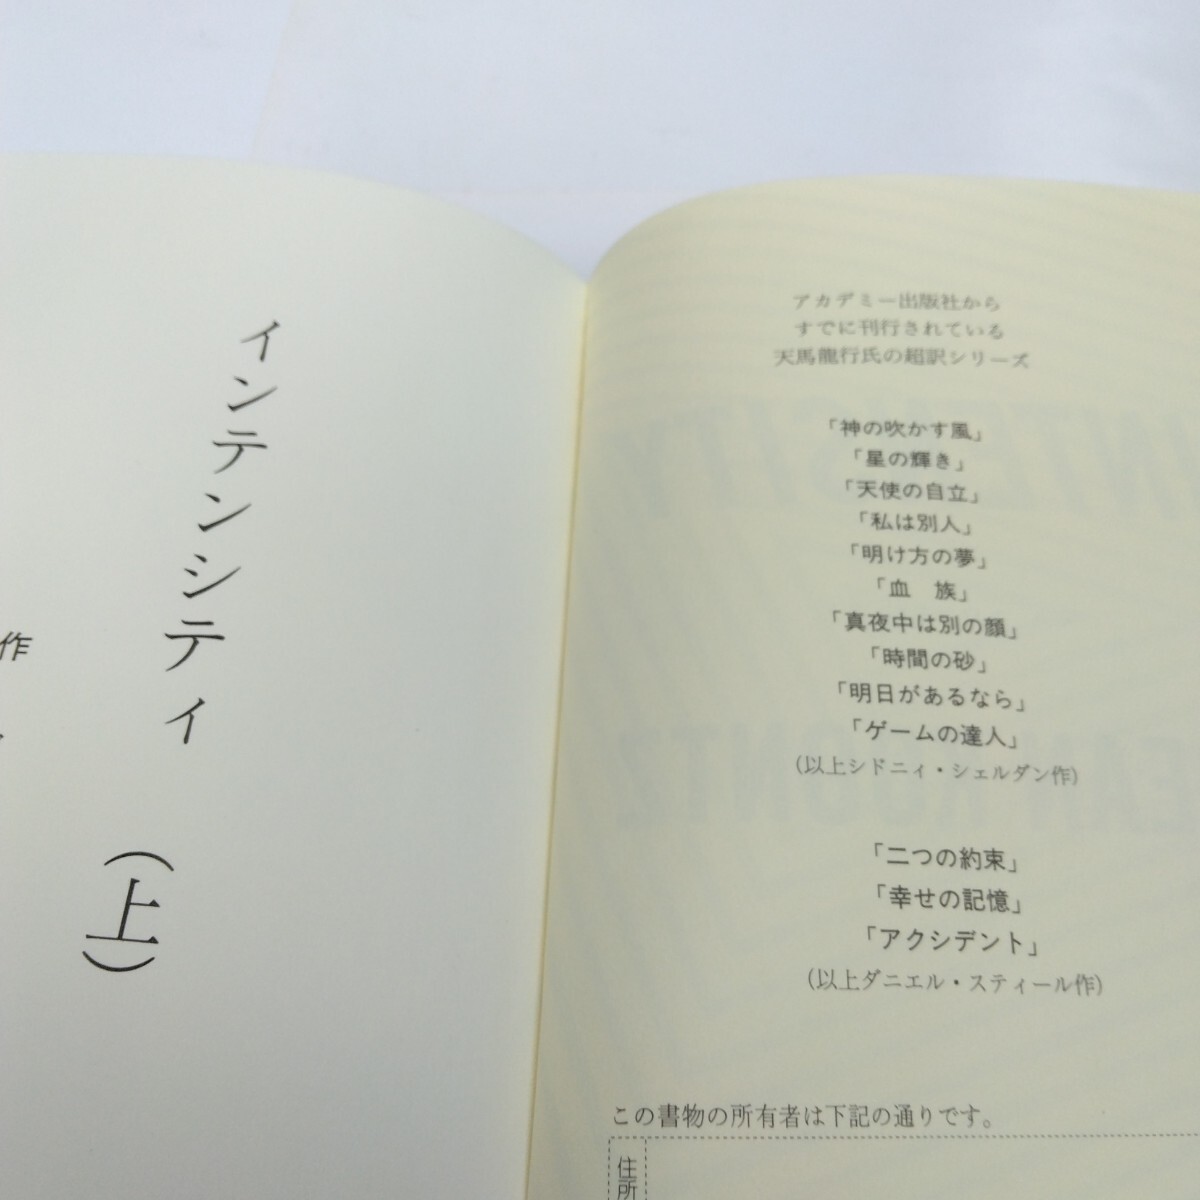 アカデミー出版社から
すでに刊行されている
天馬龍行氏の超訳シリーズ
「神の吹かす風」
「星の輝き」
「天使の自立」
「私は別人」
「明け方の夢」
「血　族」
「真夜中は別の顔」
「時間の砂」
「明日があるなら」
「ゲームの達人」
(以上シドニィ・シェルダン作)
「二つの約束」
「幸せの記憶」
「アクシデント」
(以上ダニエル・スティール作)
この書物の所有者は下記の通りです。
住所
インテンシティ(上)
作